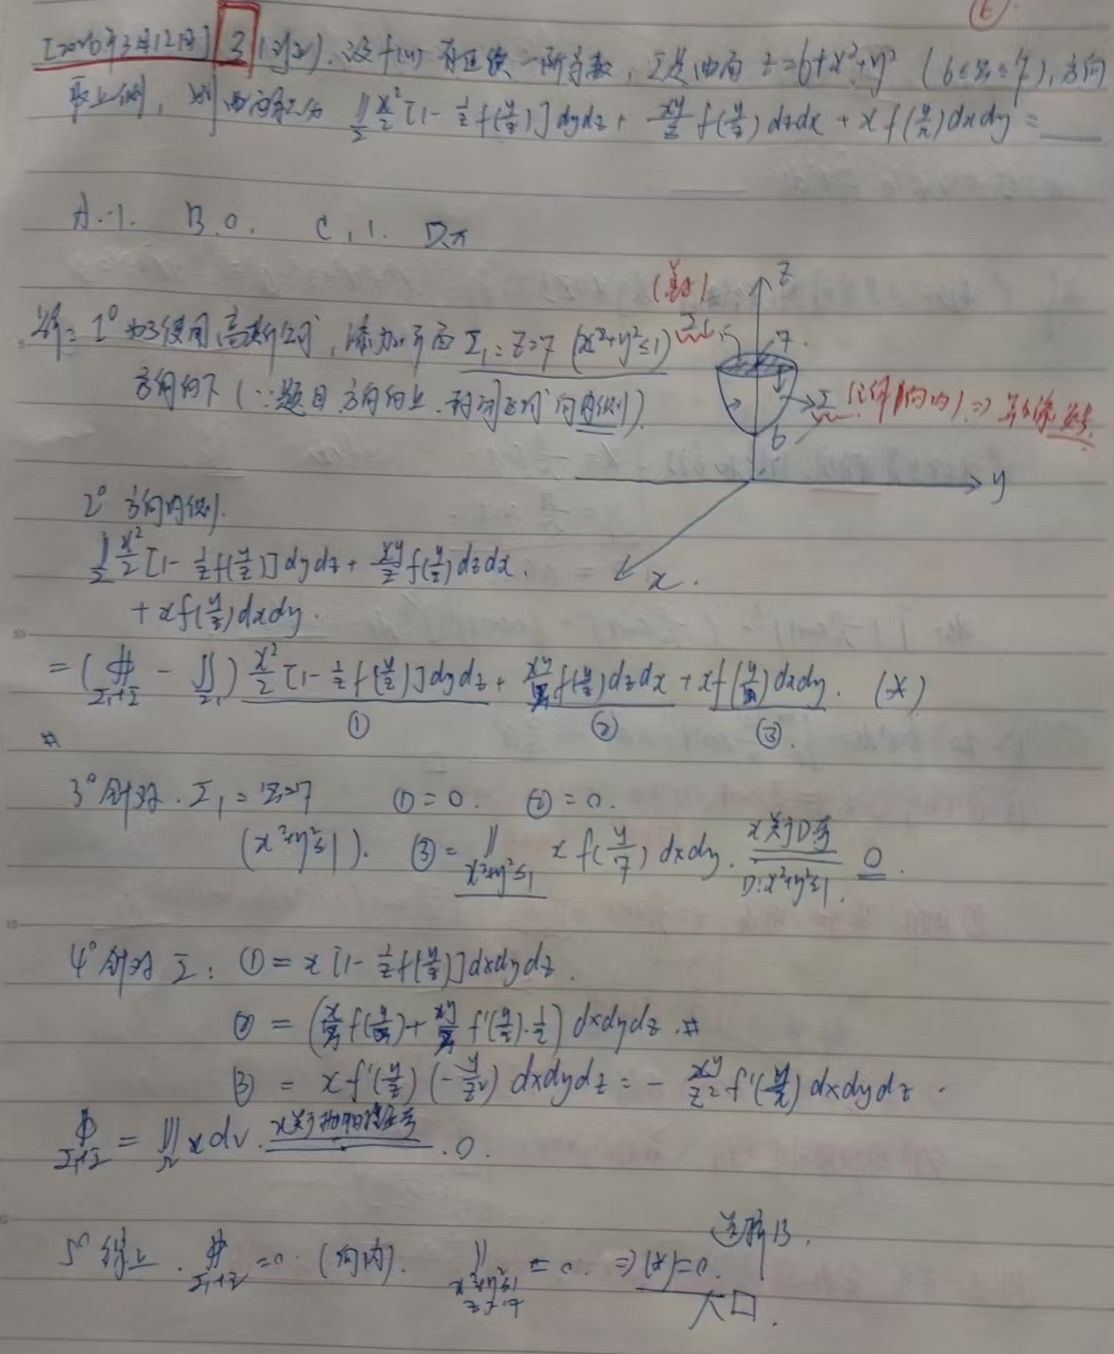 ⑥
[2026年3月12日] 3 设f(u)有连续一阶导数,Σ是曲面 z=6+x²+y² (6≤z≤7),方向
取上侧,则曲面积分 ∬_Σ x²/2 [1-1/z f(y/z)]dydz + xy/z f(y/z)dzdx + x f(y/z)dxdy = ___
A.-1. B.0. C.1. D.π
解:1° 为了使用高斯公式,添加平面 Σ₁:z=7 (x²+y²≤1)
方向向下(∵题目方向向上,封闭区间向内侧).
z
Σ₁
7
Σ
6 y
x
2° 方向内侧.
∬_Σ x²/2 [1-1/z f(y/z)]dydz + xy/z f(y/z)dzdx
+ x f(y/z)dxdy.
= (∯_{Σ₁+Σ} - ∬_{Σ₁}) x²/2 [1-1/z f(y/z)]dydz + xy/z f(y/z)dzdx + x f(y/z)dxdy. (*)
① ② ③.
3° 针对. Σ₁: z=7 ①=0. ②=0.
(x²+y²≤1). ③=∬_{x²+y²≤1} x f(y/7)dxdy. x关于D奇 D:x²+y²≤1. 0.
4° 针对 Σ: ①= x[1-1/z f(y/z)]dxdydz.
②= (x/z f(y/z) + xy/z f'(y/z)·1/z) dxdydz.
③ = x f'(y/z)(-y/z²)dxdydz = - xy/z² f'(y/z)dxdydz.
∯_{Σ₁+Σ} = ∭_Ω x dv. 0.
5° 综上. ∯_{Σ₁+Σ} =0. (向内). ∬_{x²+y²≤1 z=7} =0. ⇒ (*)=0.
选择B.